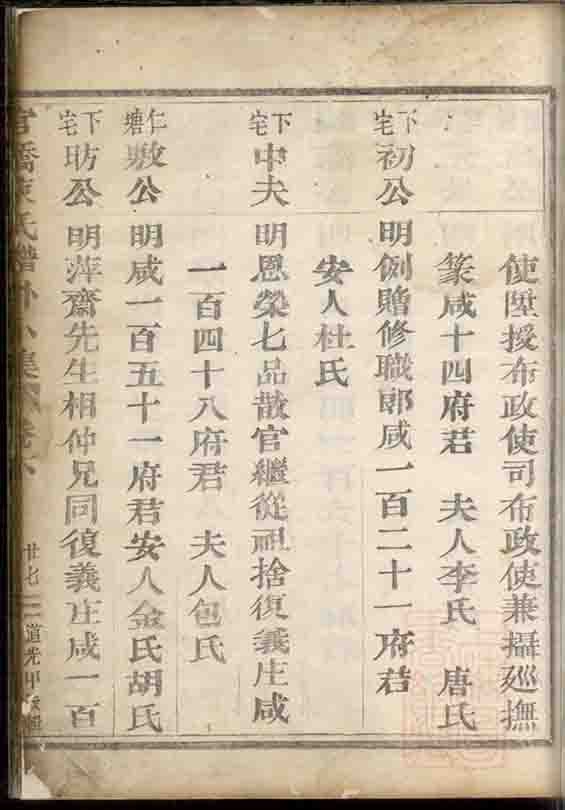 使陞授布政使司布政使兼攝廵撫
篆咸十四府君　夫人李氏　唐氏
下宅　初公　明例贈修職郎咸一百二十一府君
安人杜氏
下宅　中夫　明恩榮七品散官繼從祖捨復義庄咸
一百四十八府君　夫人包氏
仁塘　敭公　明咸一百五十一府君安人金氏胡氏
下宅　昉公　明萍齋先生相仲兄同復義庄咸一百
官橋 氏譜 集 卷 廿七 道光甲